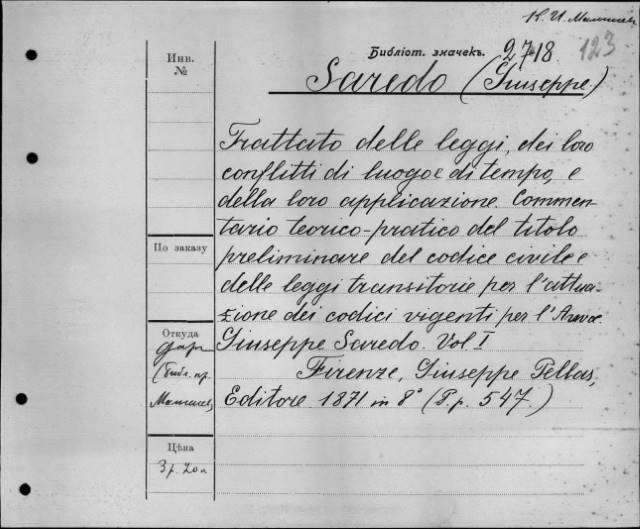 Н. И. Малышев
Библіот. значекъ. 2718 123
Инв.
№
Saredo (Giuseppe)
Trattato delle leggi, dei loro
conflitti di luogo e di tempo, e
della loro applicazione. Commen-
tario teorico-pratico del titolo
preliminare del codice civile e
delle leggi transitorie per l'attua-
zione dei codici vigenti per l'Avvoc.
Giuseppe Saredo. Vol I
Firenze, Giuseppe Pellas,
Editore 1871 in 8° (P.p. 547.)
По заказу
Откуда
даръ
(библ. пр.
Малышев
Цѣна
3 р. 20 к